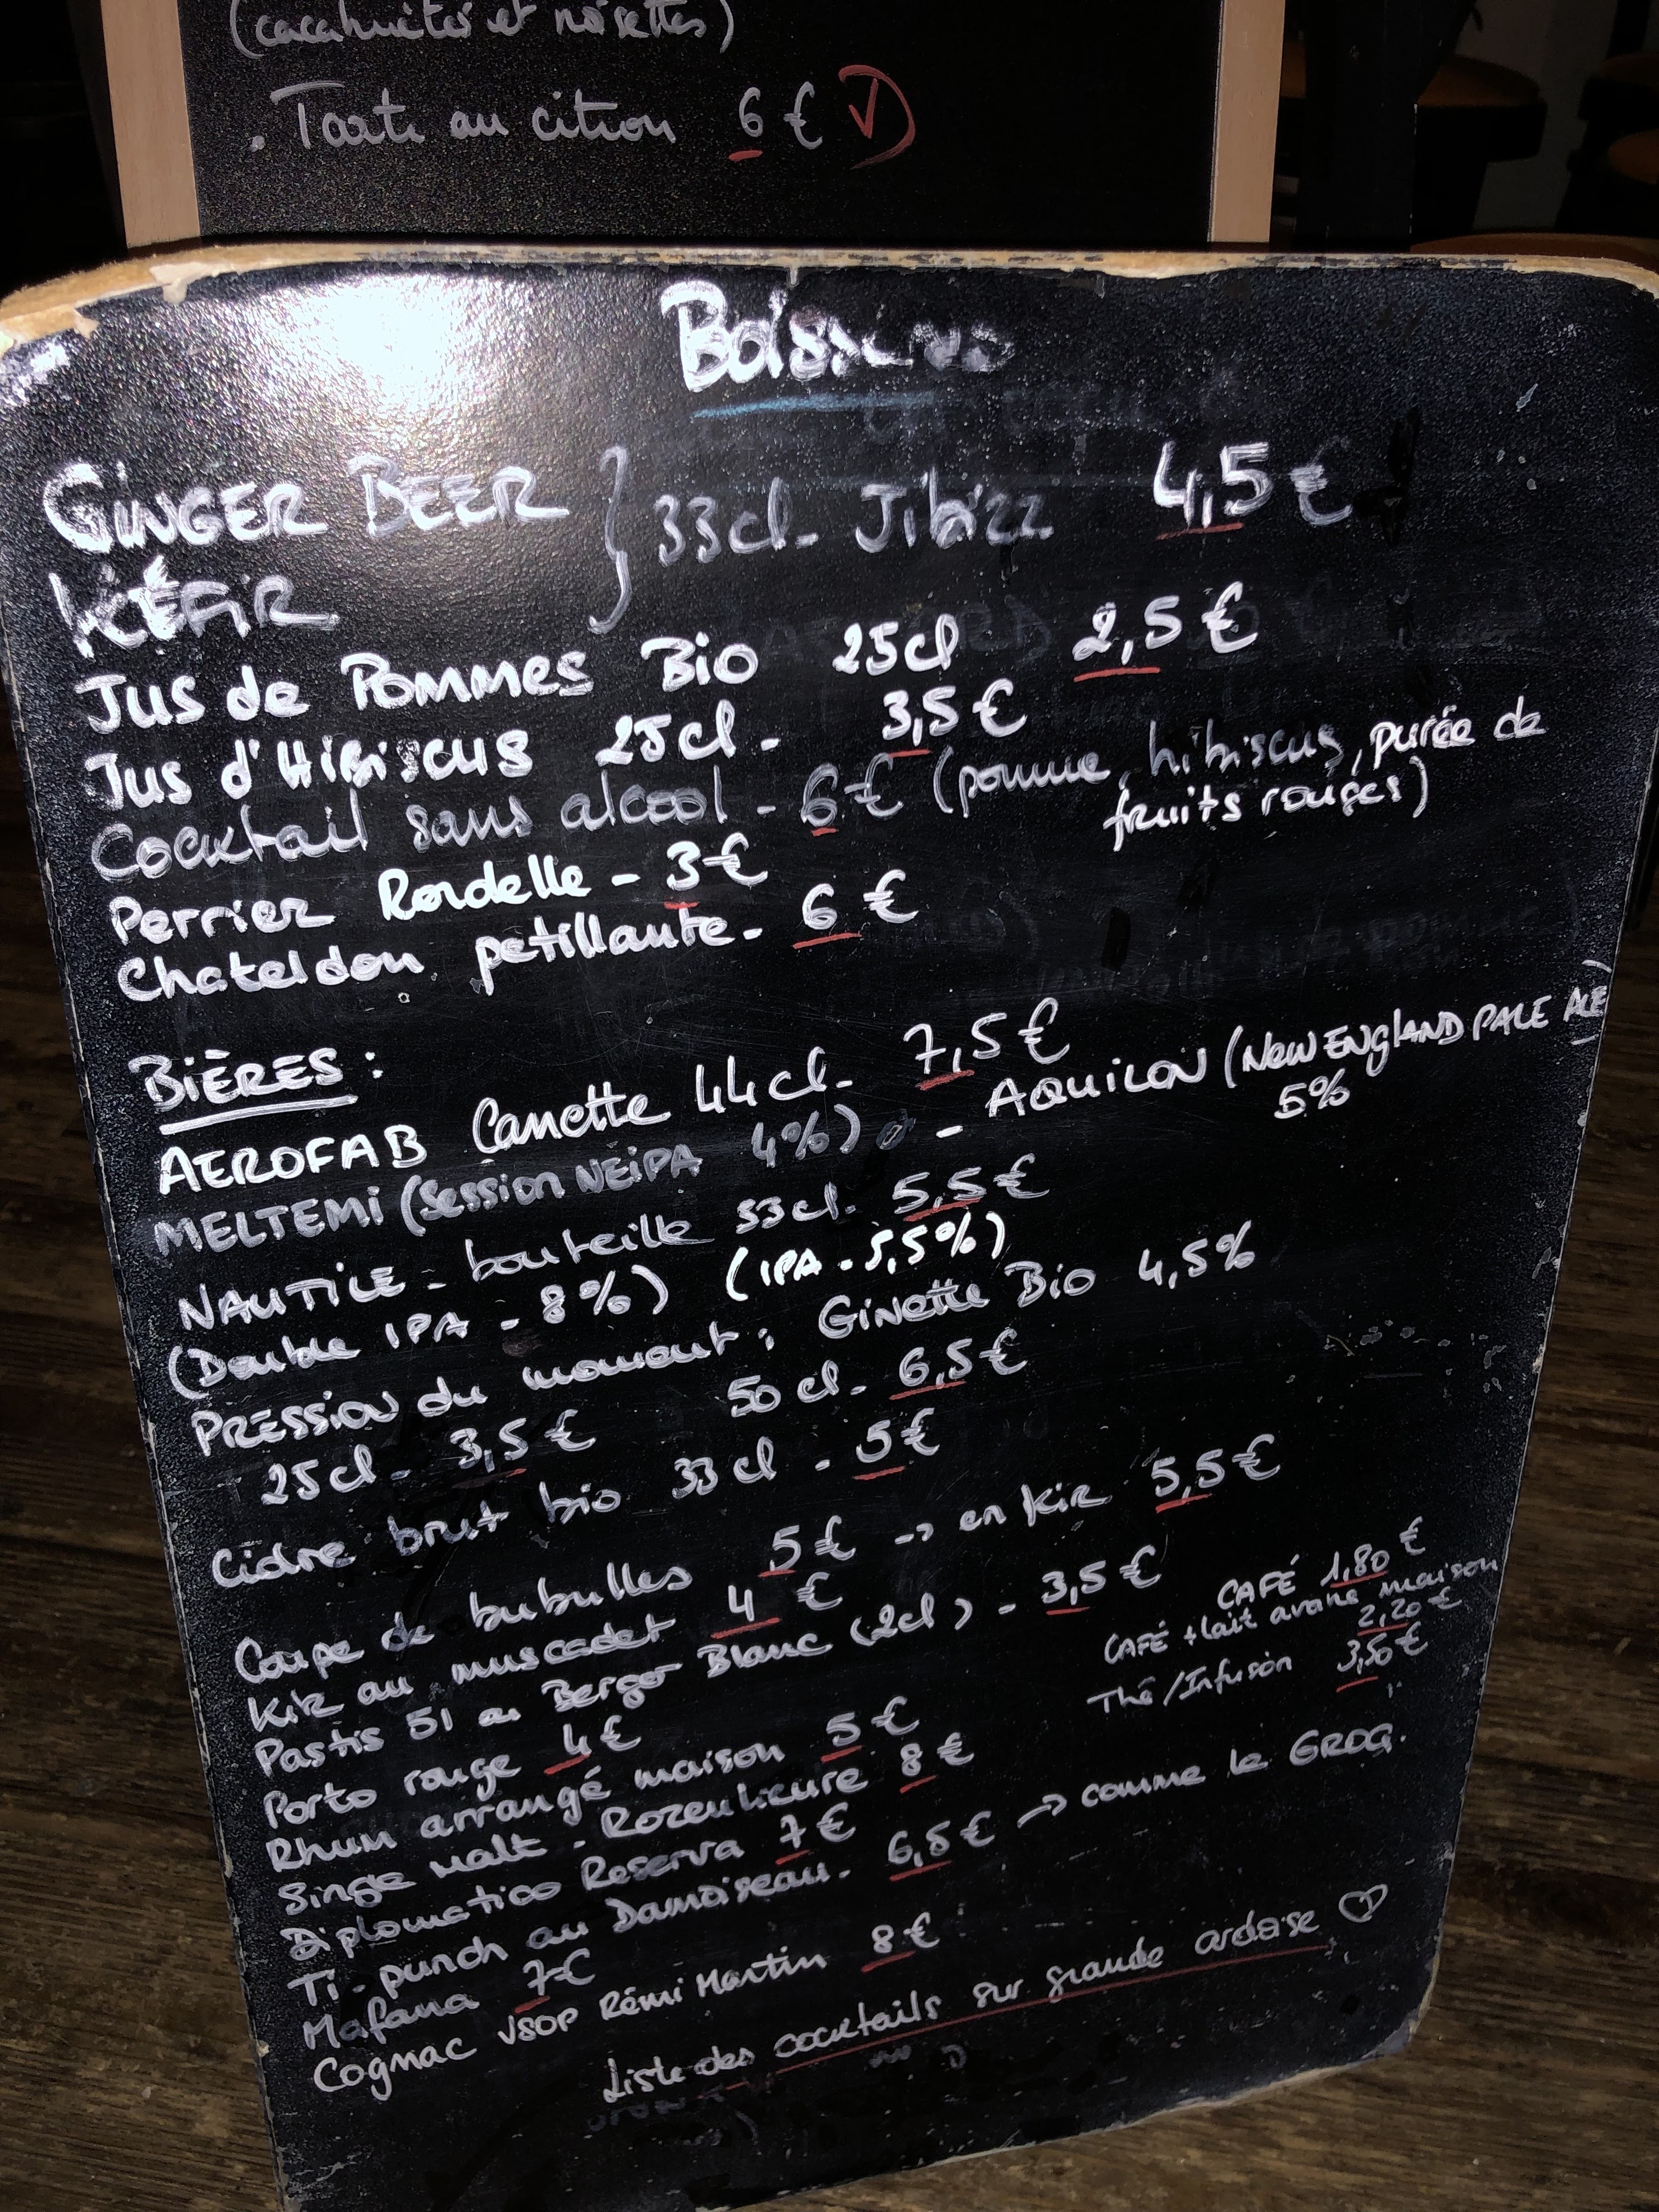 (cacahuètes et noisettes)
. Tarte au citron 6 € V
Boissons
GINGER BEER } 33cl - Jibizz 4,5 €
KÉFIR
Jus de Pommes Bio 25cl 2,5 €
Jus d'Hibiscus 25cl - 3,5 €
Cocktail sans alcool - 6 € (pomme, hibiscus, purée de
fruits rouges)
Perrier Rondelle - 3 €
Chateldon petillante - 6 €
BIÈRES :
AEROFAB Canette 44cl - 7,5 €
MELTEMI (Session NEIPA 4%) - AQUILON (NEW ENGLAND PALE ALE)
5%
NAUTILE - bouteille 33cl - 5,5 €
(Double IPA - 8%) (IPA - 5,5%)
PRESSION du moment : Ginette Bio 4,5%
25cl - 3,5 € 50 cl - 6,5 €
Cidre brut bio 33 cl - 5 €
Coupe de bubulles 5 € -> en Kir 5,5 €
Kir au muscadet 4 €
Pastis 51 ou Berger Blanc (2cl) - 3,5 €
CAFÉ 1,80 €
CAFÉ + lait avoine maison
2,20 €
Thé / Infusion 3,50 €
Porto rouge 4 €
Rhum arrangé maison 5 €
Singe malt - Rozelieure 8 €
Diplomatico Reserva 7 €
Ti-punch au Damoiseau - 6,5 € -> comme le GROG.
Mafana 7 €
Cognac VSOP Rémi Martin 8 €
Liste des cocktails sur grande ardoise ♡